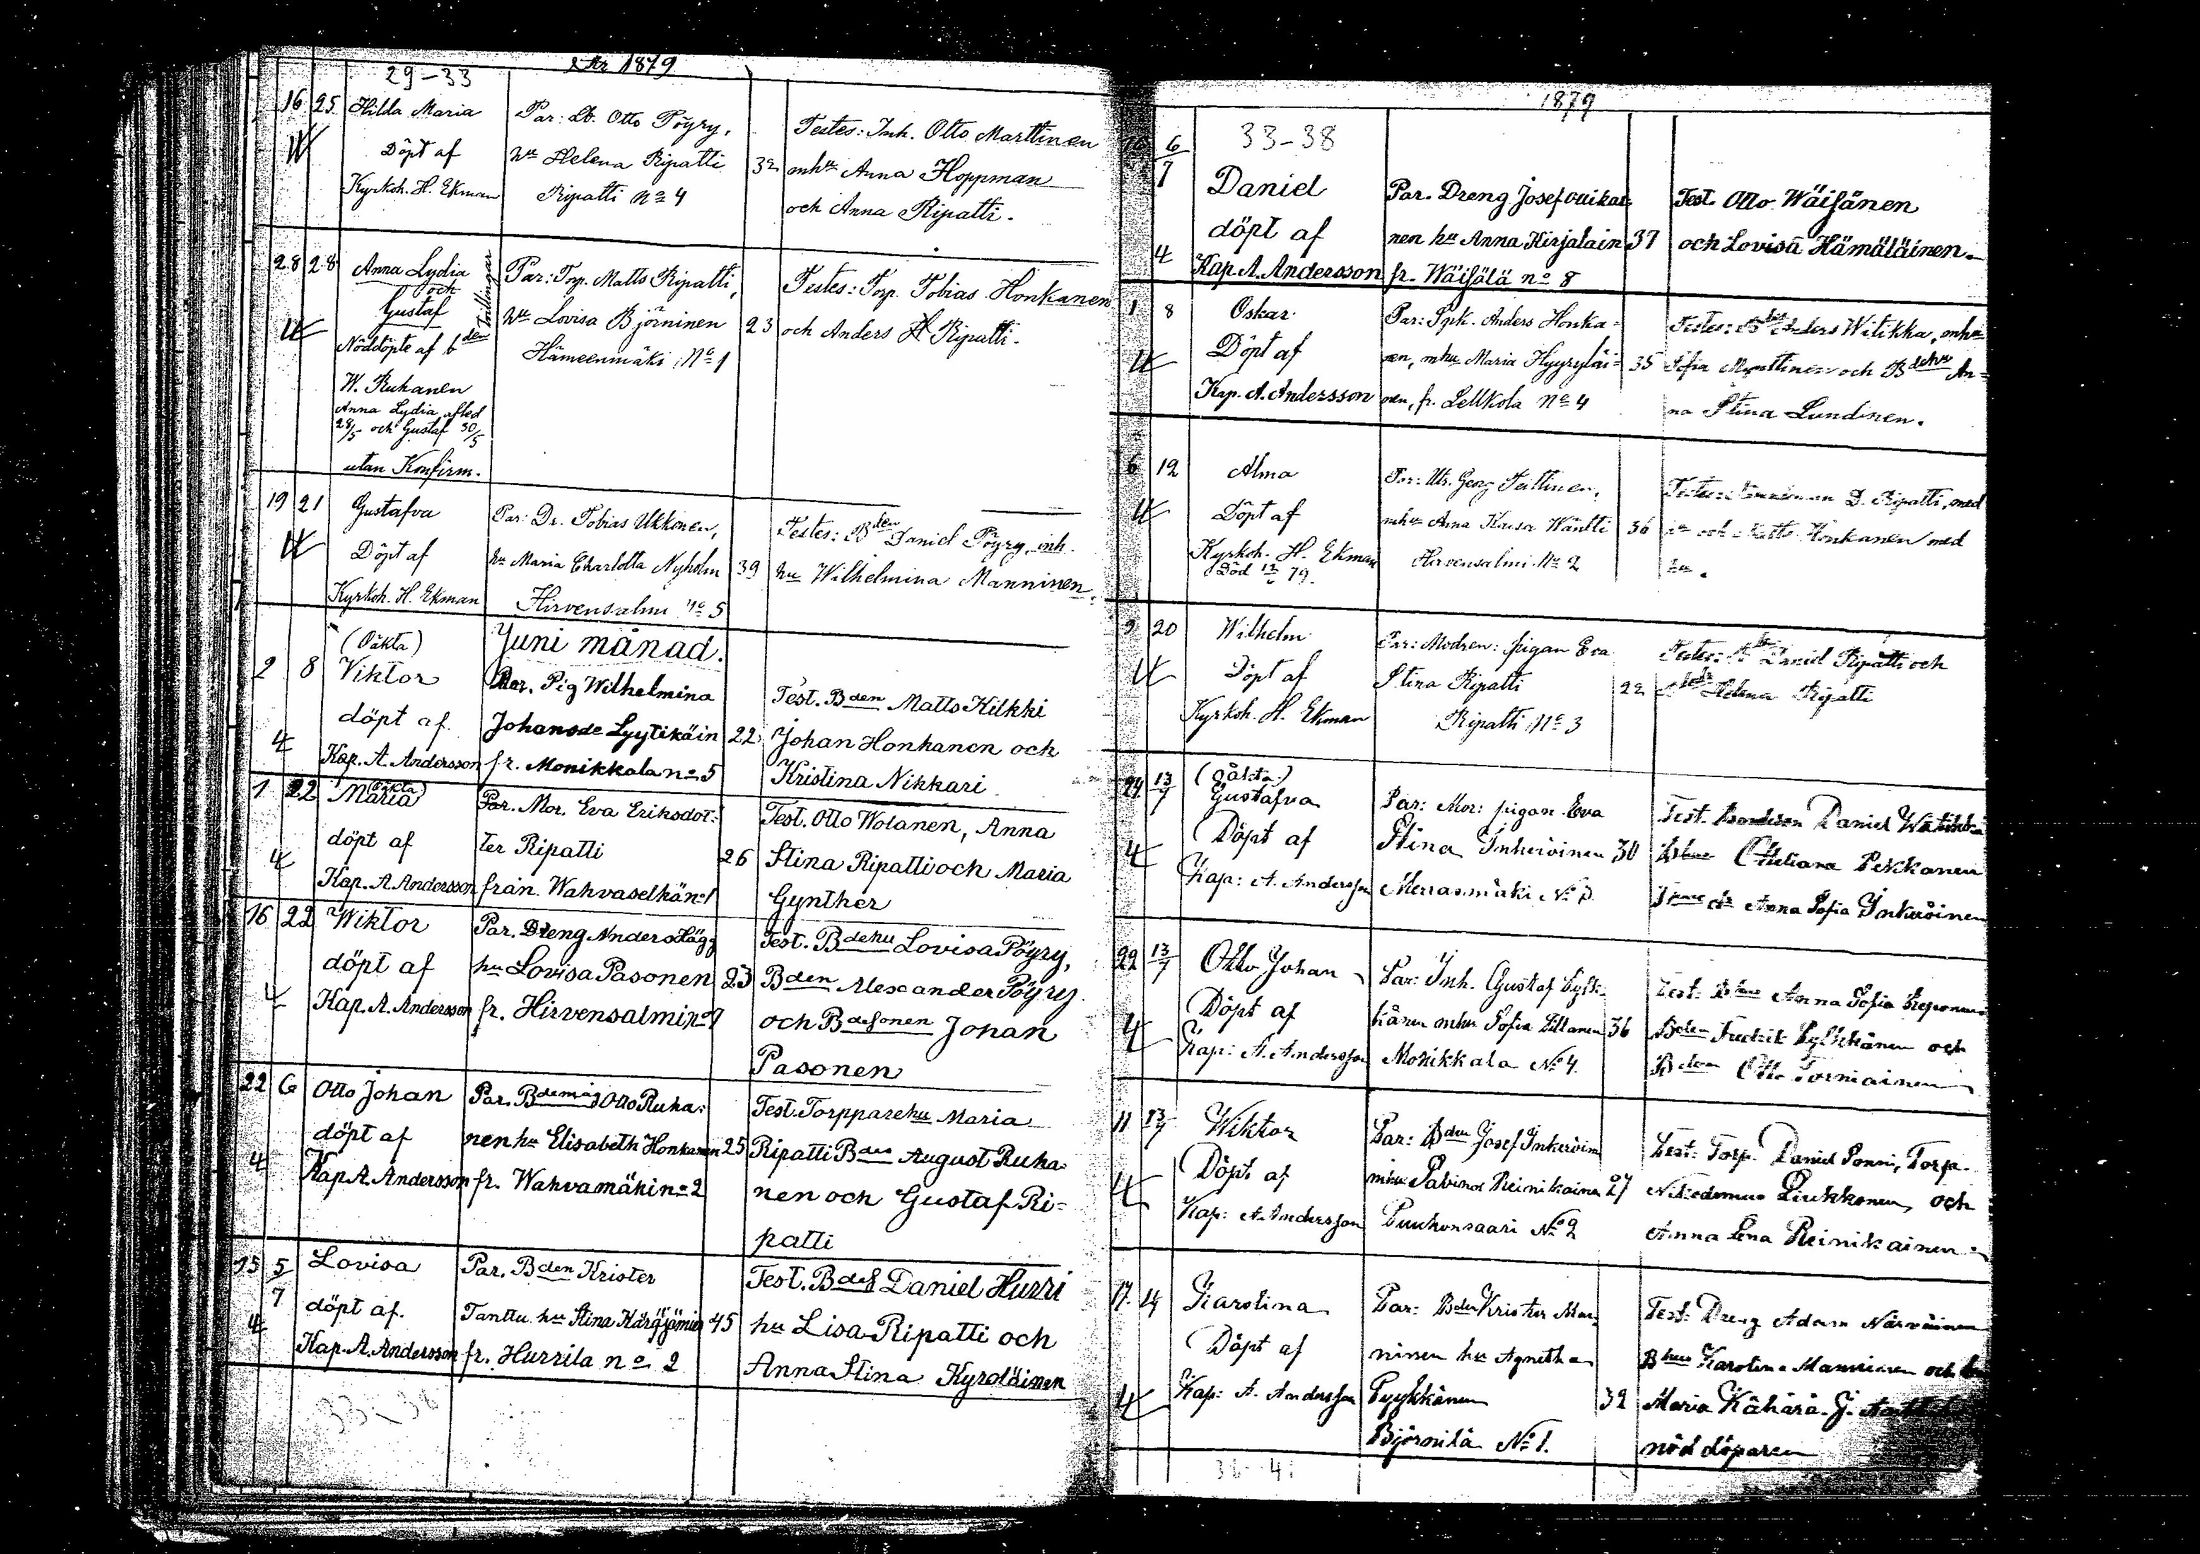 År 1879
29-33
16 25 Hilda Maria Par: Lt. Otto Pöyry, Testes: Inh. Otto Marttinen
Döpt af hu Helena Ripatti 32 mhu Anna Hoppman
Kyrkoh. H. Ekman Ripatti No 4 och Anna Ripatti.
28 28 Anna Lydia Par: Torp. Matts Ripatti, Testes: Torp. Tobias Honkanen
och
Gustaf tvillingar hu Lovisa Björninen 23 och Anders Ripatti.
Nöddöpte af bden Hämeenmäki No 1
W. Ruhanen
Anna Lydia afled
28/5 och Gustaf 30/5
utan Konfirm.
19 21 Gustafva Par: Dr. Tobias Ukkonen, Testes: Bden Daniel Pöyry, mh.
Döpt af hu Maria Charlotta Nyholm 39 hu Wilhelmina Manninen.
Kyrkoh. H. Ekman Hirvensalmi No 5
(Oäkta) Juni månad.
2 8 Viktor Mor. Pig Wilhelmina Test. Bden Matts Kilkki
döpt af Johansde Lyytikäin 22 Johan Honkanen och
4 Kap. A. Andersson fr. Monikkala no 5 Kristina Nikkari
1 22 Maria (Oäkta) Par. Mor. Eva Eriksdot- Test. Otto Wolanen, Anna
döpt af ter Ripatti 26 Stina Ripatti och Maria
4 Kap. A. Andersson från Wahvaselkä no 1 Gynther
16 22 Wiktor Par. Dreng Anders Hägg Test. Bdehu Lovisa Pöyry,
döpt af hu Lovisa Pasonen 23 Bden Alexander Pöyry
4 Kap. A. Andersson fr. Hirvensalmi no 7 och Bdesonen Johan
Pasonen
22 6 Otto Johan Par. Bdemåg Otto Ruha- Test. Torpparehu Maria
döpt af nen hu Elisabeth Honkanen 25 Ripatti Bden August Ruha
4 Kap. A. Andersson fr. Wahvamäki no 2 nen och Gustaf Ri-
patti
15 5/7 Lovisa Par. Bden Krister Test. Bdes Daniel Hurri
döpt af. Tanttu hu Stina 45 hu Lisa Ripatti och
4 Kap. A. Andersson fr. Hurrila no 2 Anna Stina Kyröläinen
33-38
1879
33-38
6/7 Daniel Par. Dreng Josef Test. Otto Wäisänen
döpt af nen hu Anna Hirjalain 37 och Lovisa Hämäläinen.
4 Kap. A. Andersson fr. Wäisälä no 8
1 8 Oskar Par: Spk. Anders Honka- Testes: Anders Witikka, mhu
Döpt af nen, mhu Maria Hyyryläi- 35 Sofia Marttinen och Bdehu An-
Kap. A. Andersson nen, fr. Lellkola No 4 na Stina Lundinen.
6 12 Alma Par: Georg Tuttinen, Testes: D. Ripatti, med
Döpt af mhu Anna Kaisa Wäntti 36 hu och Matts Honkanen med
Kyrkoh. H. Ekman Hirvensalmi No 2 hu.
Död 79.
9 20 Wilhelm Par: Modren: pigan Eva Testes: Daniel Ripatti och
Döpt af Stina Ripatti 22 Helena Ripatti
Kyrkoh. H. Ekman Ripatti No 3
24 13/7 (Oäkta) Gustafva Par: Mor: pigan Eva Test. bondeson Daniel
Döpt af Stina Inkeroinen 30 Otteliana Pekkanen
4 Kap: A. Andersson Merrasmäki No Anna Sofia Inkeroinen
22 13/7 Otto Johan Par: Inh. Gustaf Lyyti- Test: Anna Sofia Reponen
Döpt af käinen mhu Sofia 36 Bden Fredrik och
4 Kap: A. Andersson Monikkala No 4. Bden Otto Torniainen
11 13/7 Wiktor Par: Bden Josef Inkeroin Test: Torp. Daniel Ponni, Torp.
Döpt af mhu Sabina Reinikainen 27 Nikodemus Liukkonen och
4 Kap: A. Andersson Puukonsaari No 2 Anna Lena Reinikainen
17. 14 Karolina Par: Bden Krister Man- Test: Dreng Adam Närväinen
Döpt af ninen hu Agnetha Karolina Manninen och
4 Kap: A. Andersson Pyykkänen 32 Maria Kähärä.
Björnilä No 1. nöd döparen